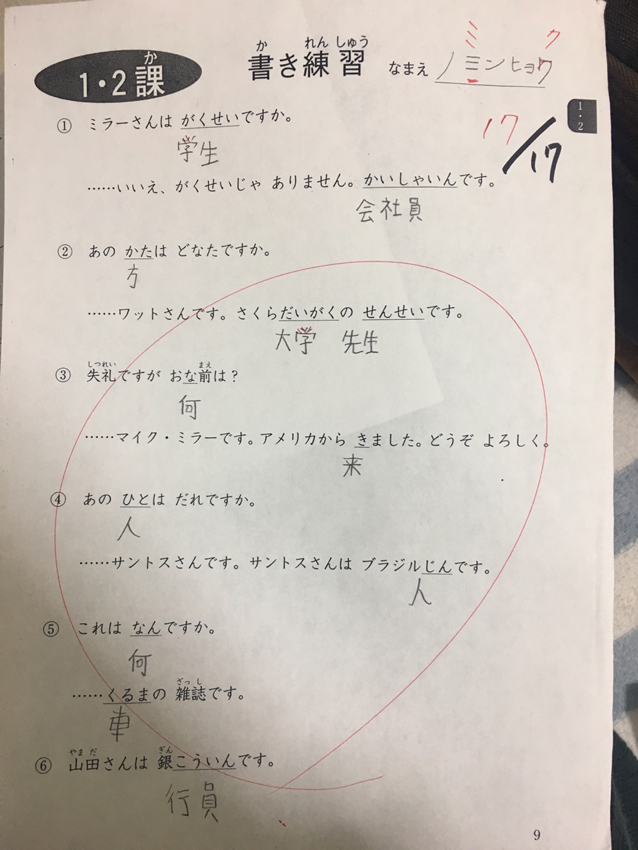 1・2 課 か
書き練習 か れん しゅう なまえ ノミンヒョウ ミ ク
1・2
17/17
① ミラーさんは がくせいですか。
学生
……いいえ、がくせいじゃ ありません。かいしゃいんです。
会社員
② あの かたは どなたですか。
方
……ワットさんです。さくらだいがくの せんせいです。
大学 先生
しつれい まえ
③ 失礼ですが おな前は？
何
……マイク・ミラーです。アメリカから きました。どうぞ よろしく。
来
④ あの ひとは だれですか。
人
……サントスさんです。サントスさんは ブラジルじんです。
人
⑤ これは なんですか。
何
ざっ し
……くるまの 雑誌です。
車
やま だ ぎん
⑥ 山田さんは 銀こういんです。
行員
9